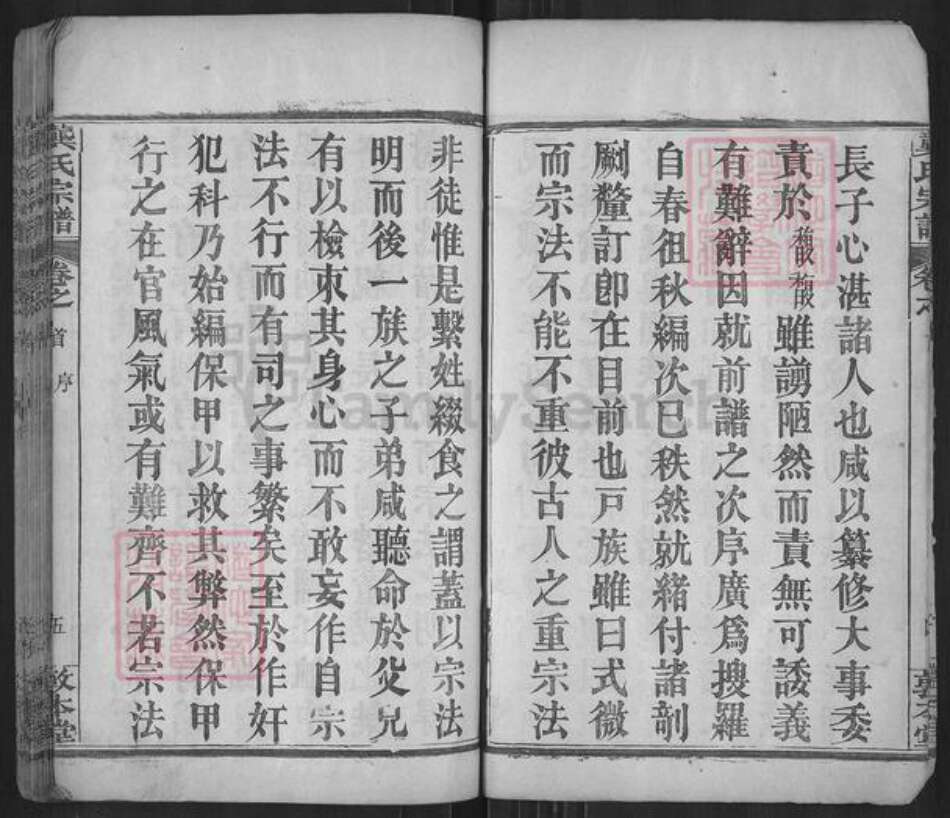 長子心湛諸人也咸以纂修大事委
責於馥馥雖謭陋然而責無可諉義
有難辭因就前譜之次序廣爲搜羅
自春徂秋編次已秩然就緒付諸剞
劂釐訂卽在目前也戸族雖曰式微
而宗法不能不重彼古人之重宗法
非徒惟是繫姓綴食之謂蓋以宗法
明而後一族之子弟咸聽命於父兄
有以檢束其身心而不敢妄作自宗
法不行而有司之事繁矣至於作奸
犯科乃始編保甲以救其弊然保甲
行之在官風氣或有難齊不若宗法
龔氏宗譜 卷之首 序 五 敦本堂
FamilySearch